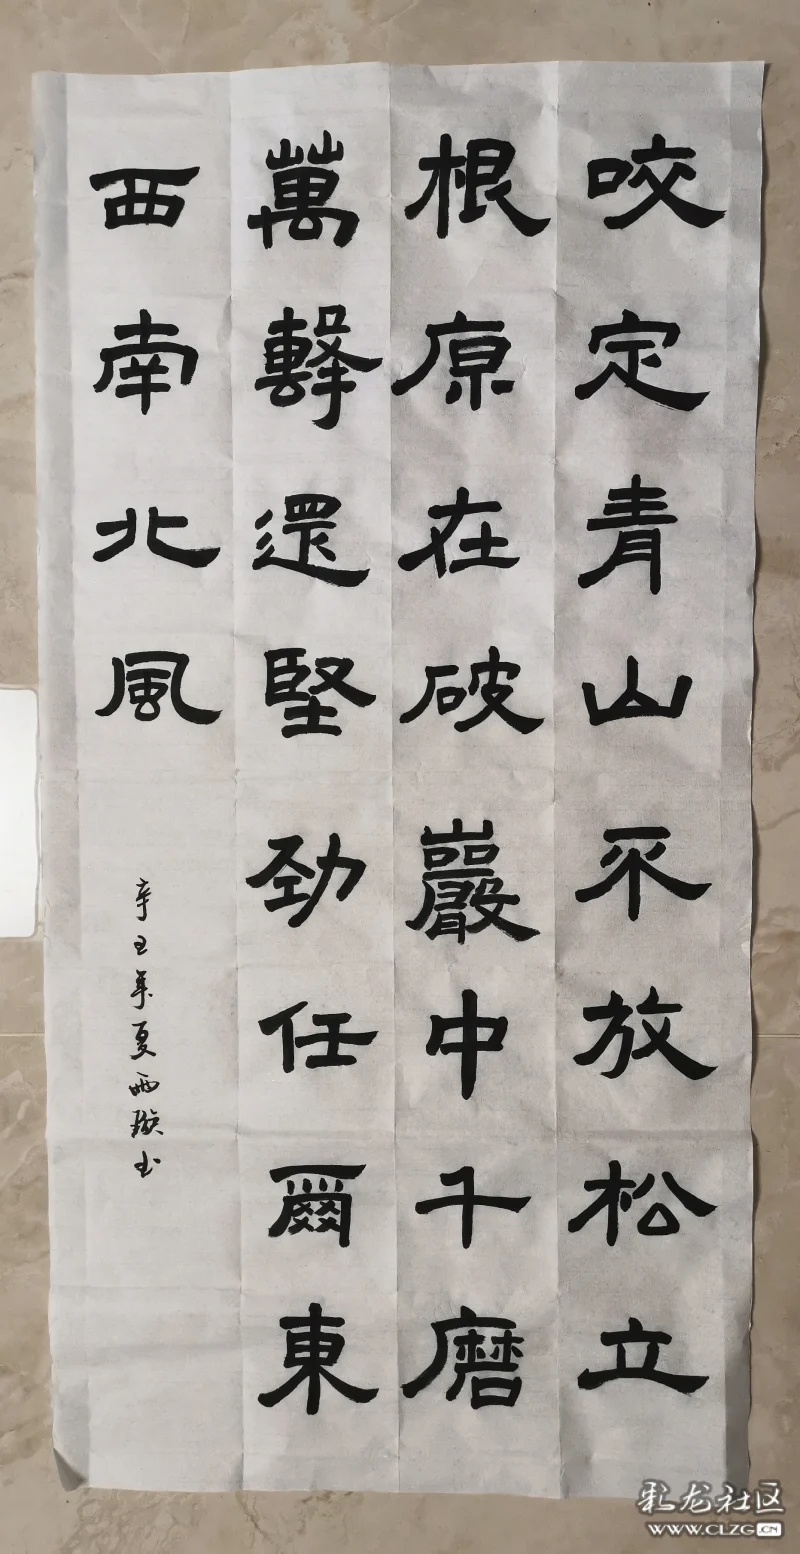 咬定青山不放松立
根原在破巖中千磨
萬擊還堅勁任爾東
西南北風
辛丑年夏西璇书
彩龙社区
WWW.CLZG.CN